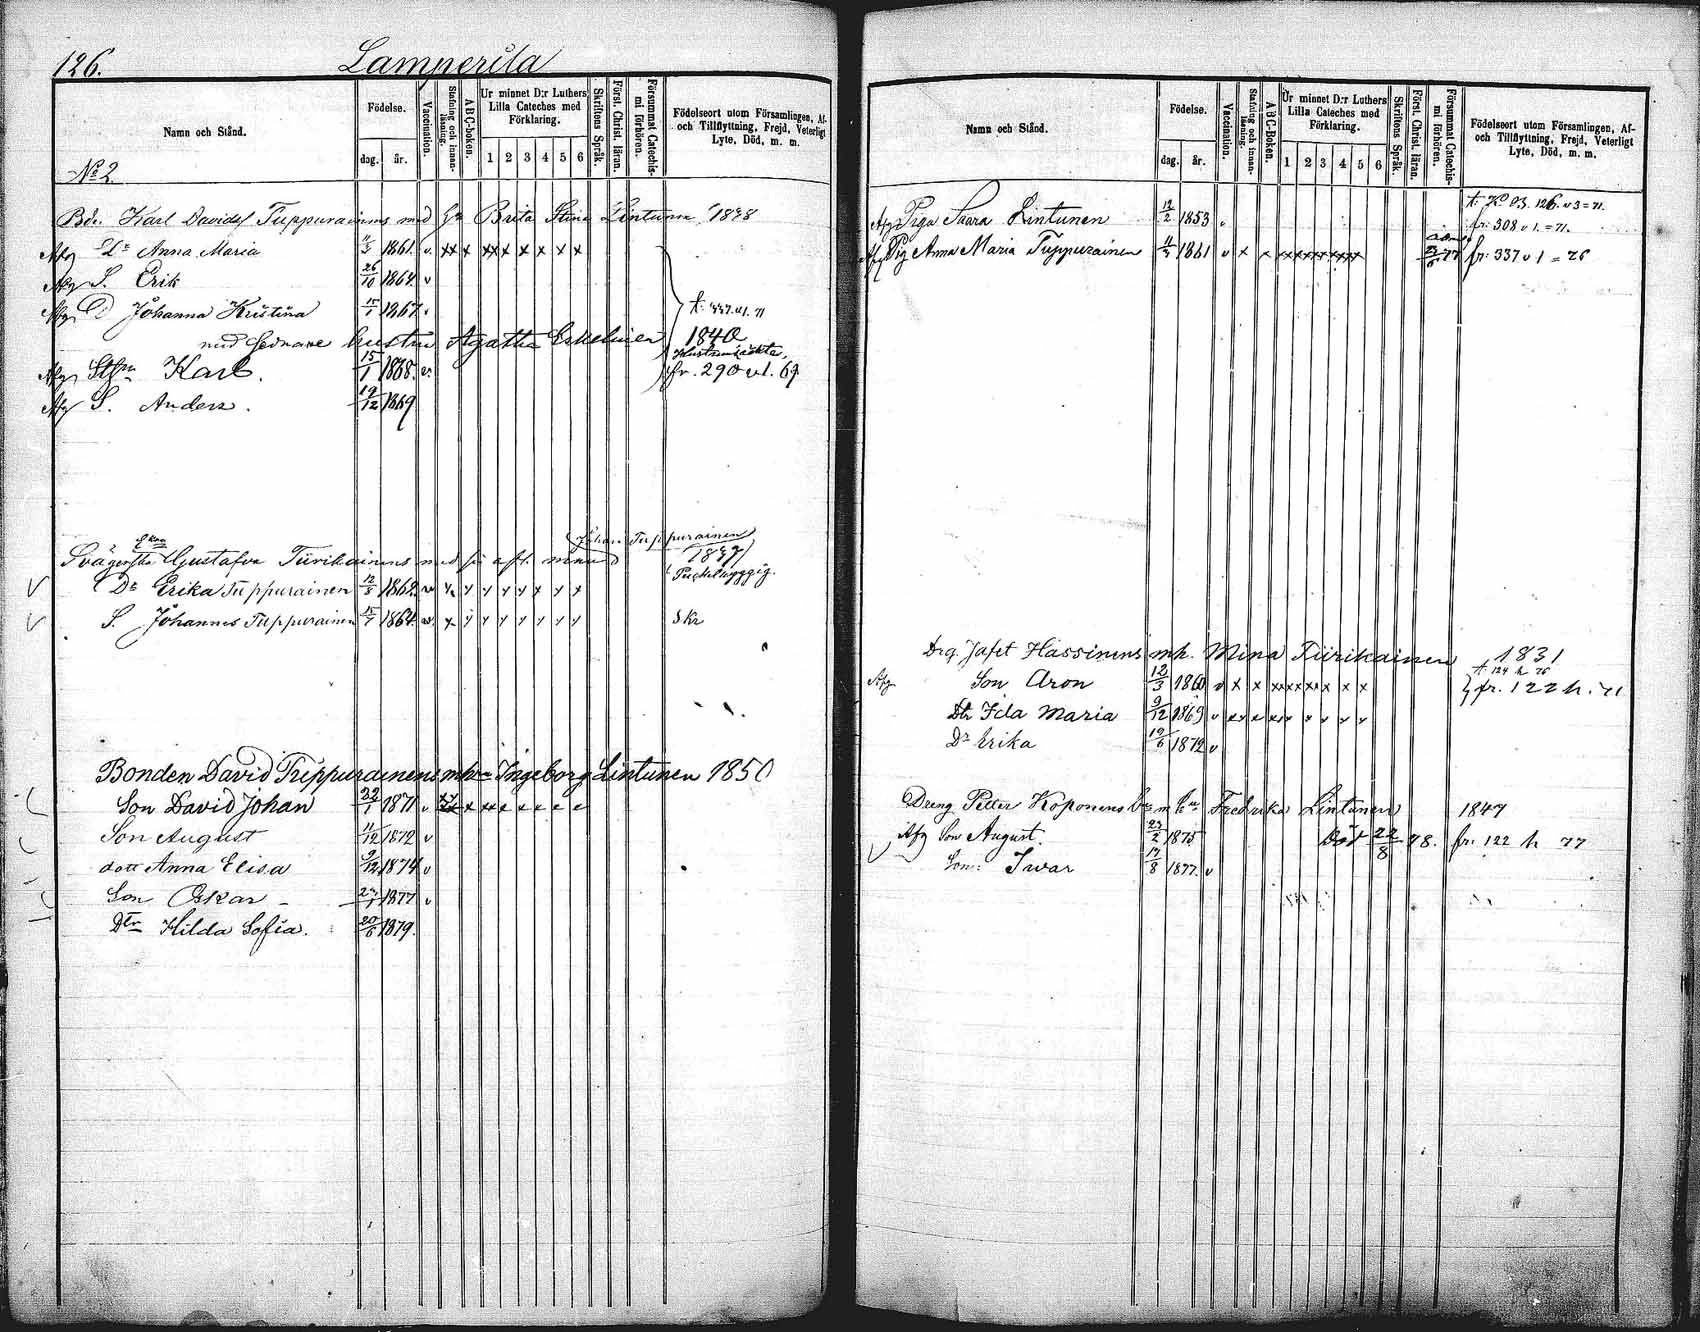 126. Lamperila
Namn och Stånd.
Födelse.
dag.
år.
Vaccination.
Stafning och innanläsning.
ABC-boken.
Ur minnet D:r Luthers
Lilla Cateches med
Förklaring.
1 2 3 4 5 6
Skriftens Språk.
Först. Christ. läran.
Försummat Catechismi förhören.
Födelseort utom Församlingen, Af-
och Tillflyttning, Frejd, Veterligt
Lyte, Död, m. m.
No 2.
Karl Davids Tuppurainens med Brita Stina Lintunen
Afg Dr Anna Maria 11/3 1861 v x x x x x x x x
Afg S. Erik 26/10 1864 v
Afg D Johanna Kristina 15/1 1867 v
med sednare hustru Agatha Eskelinen 1840
Afg Karl. 15/1 1868 v fr. 290 v 1. 69
Afg S. Anders. 19/12 1869
Johan Tuppurainen
Gustafva Tiirikainens med aft. 1837
Puckelryggig.
Dr Erika Tuppurainen 12/8 1862 v
S. Johannes Tuppurainen 1864
Bonden David Tuppurainens mhn Ingeborg Lintunen 1850
Son David Johan 22/1 1871 v
Son August 11/12 1872 v
dott Anna Elisa 9/12 1874 v
Son Oskar 1877 v
Dtr Hilda Sofia. 20/6 1879.
Namn och Stånd.
Födelse.
dag.
år.
Vaccination.
Stafning och innanläsning.
ABC-Boken.
Ur minnet D:r Luthers
Lilla Cateches med
Förklaring.
1 2 3 4 5 6
Skriftens Språk.
Först. Christ. läran.
Försummat Catechismi förhören.
Födelseort utom Församlingen, Af-
och Tillflyttning, Frejd, Veterligt
Lyte, Död, m. m.
Afg Piga Saara Lintunen 12/2 1853 v
fr. 308 v 1. = 71.
Afg Pig Anna Maria Tuppurainen 11/3 1861 v fr: 337 v 1 = 76
Drg. Jafet Hassinens mh. Mina Tiirikainen 1831
t 124 h 76
Afg Son Aron 12/3 1860 v fr. 122 h. 71
Dtr Ida Maria 9/12 1869 v
Dr Erika 19/6 1872 v
Dreng Petter Koponens Fredrika Lintunen 1847
Afg Son August. 1875 Död 22/8 78. fr: 122 h 77
Son: Iwar 17/8 1877. v